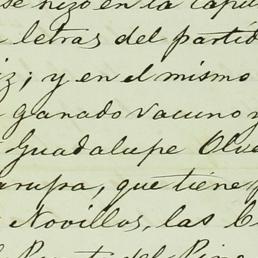 se hizo en la
letras del partid
iz; y en el mismo
ganado vacuno y
Guadalupe Olve
arupa, que tiene
Novillos, las
del Pino